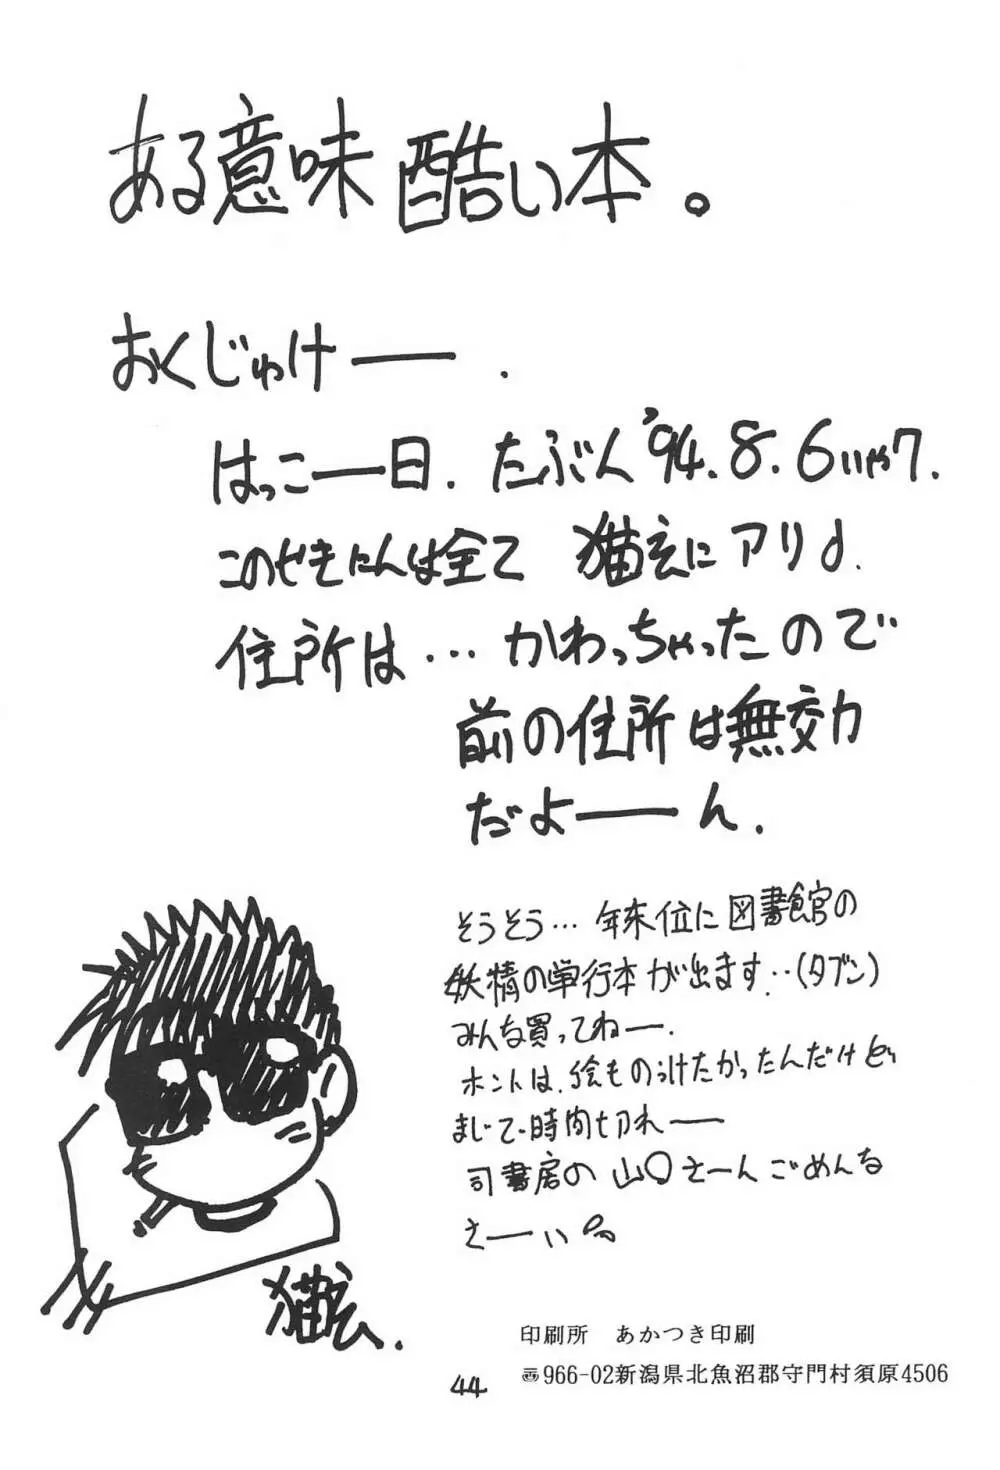 ある意味 酷い本。
おくじゅけー.
はっこー日. たぶん '94.8.6いや7.
このせきにんは全て 猫玄にアリ♩.
住所は…かわっちゃったので
前の住所は無効
だよーん.
そうそう…年末位に図書館の
妖精の単行本が出ます…(タブン)
みんな買ってねー.
ホントは、絵ものっけたかったんだけど
まじで時間切れー
司書房の 山○さーん ごめんな
さーい
猫玄.
印刷所 あかつき印刷
〠966-02新潟県北魚沼郡守門村須原4506
44